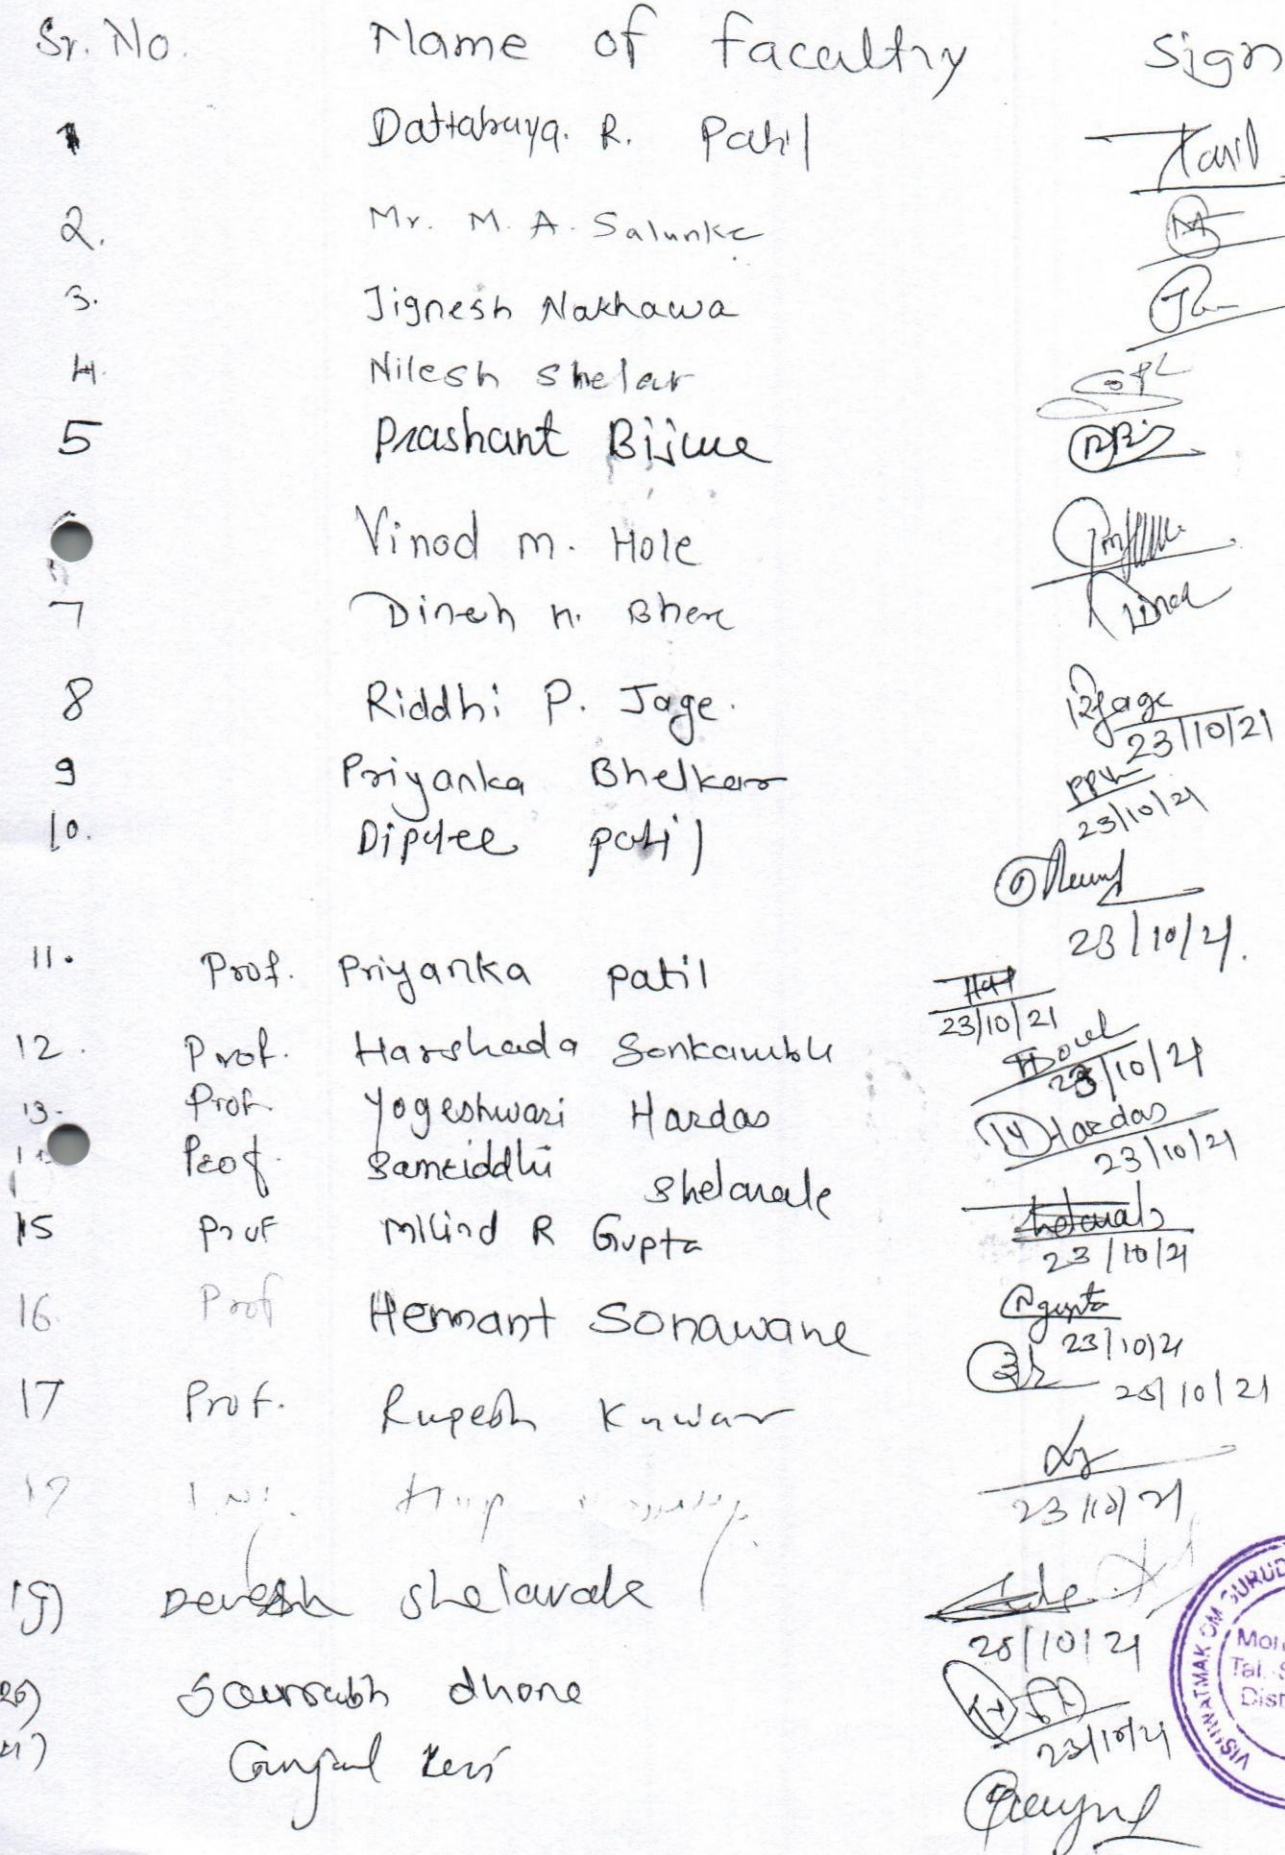 Sr. No. Name of facaltry Sign
1 Dattatraya. R. Patil
2. Mr. M. A. Salunke
3. Jignesh Nakhawa
4. Nilesh Shelar
5 Prashant Bijwe
Vinod M. Hole
7 Dinesh n. Bhere
8 Riddhi P. Jage. RJage
23/10/21
9 Priyanka Bhelkar
23/10/21
10. Diptee patil
23/10/21.
11. Prof. Priyanka patil
23/10/21
12. Prof. Harshada Sonkamble
23/10/21
13. Prof. Yogeshwari Hardas Hardas
23/10/21
Prof. Samriddhi Shelavale Shelavale
23/10/21
15 Prof Milind R Gupta Gupta
23/10/21
16. Prof Hemant Sonawane
23/10/21
17 Prof. Rupesh Kuwar
23/10/21
19) Devesh Shelavale
23/10/21
20) Saurabh dhone
23/10/21
21) Gunjal
VISHWATMAK OM GURUD
Tal.
Dist